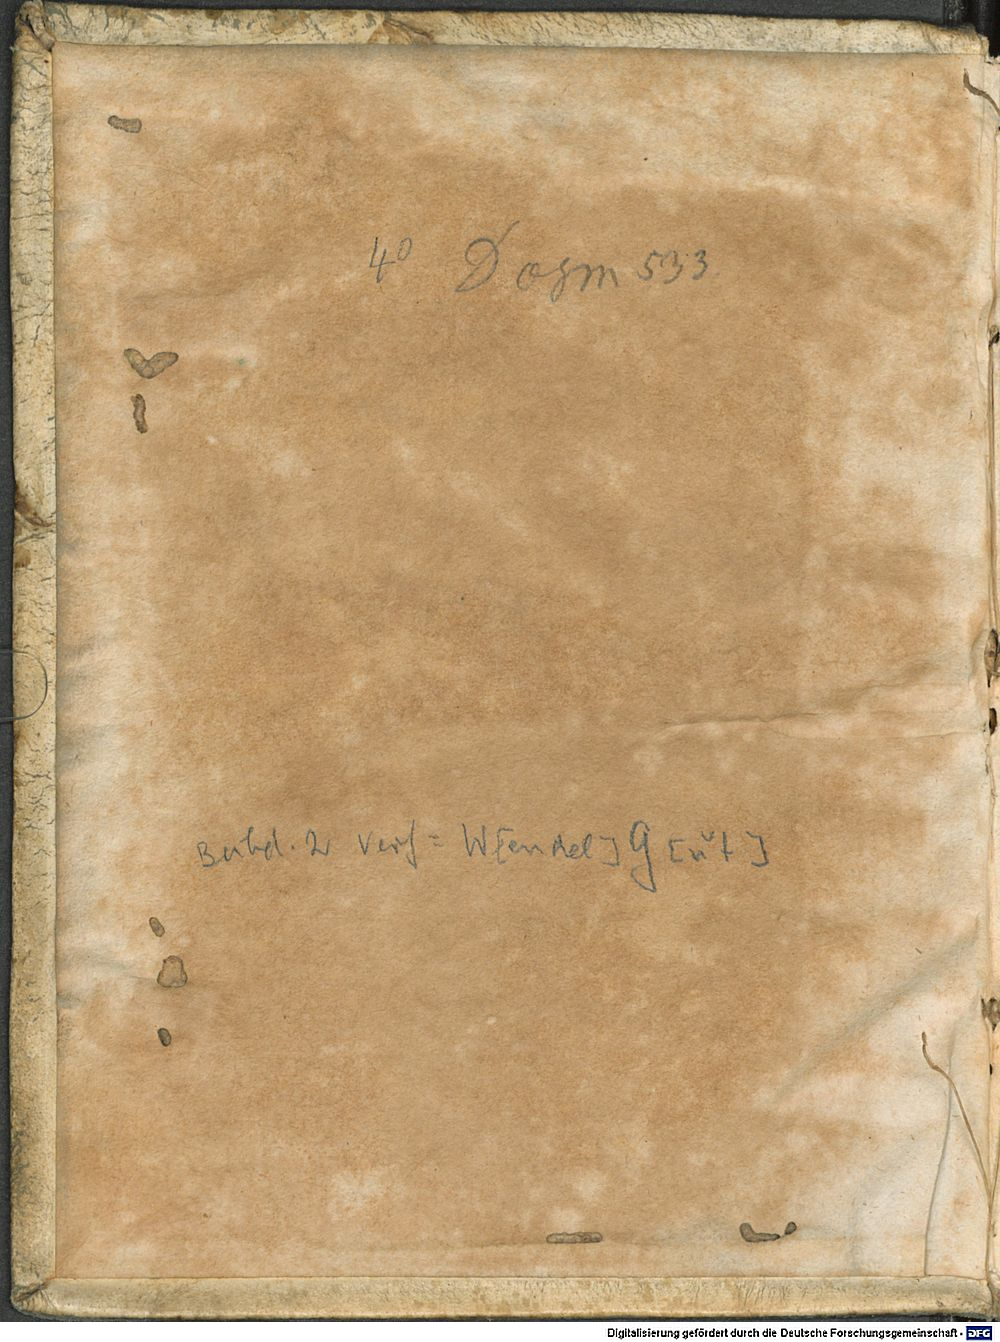 4° Dogm 533
Beibd. 2 Verf = W[endel] G[üt]
Digitalisierung gefördert durch die Deutsche Forschungsgemeinschaft - DFG